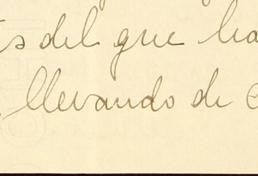 s del que ha
llevando de